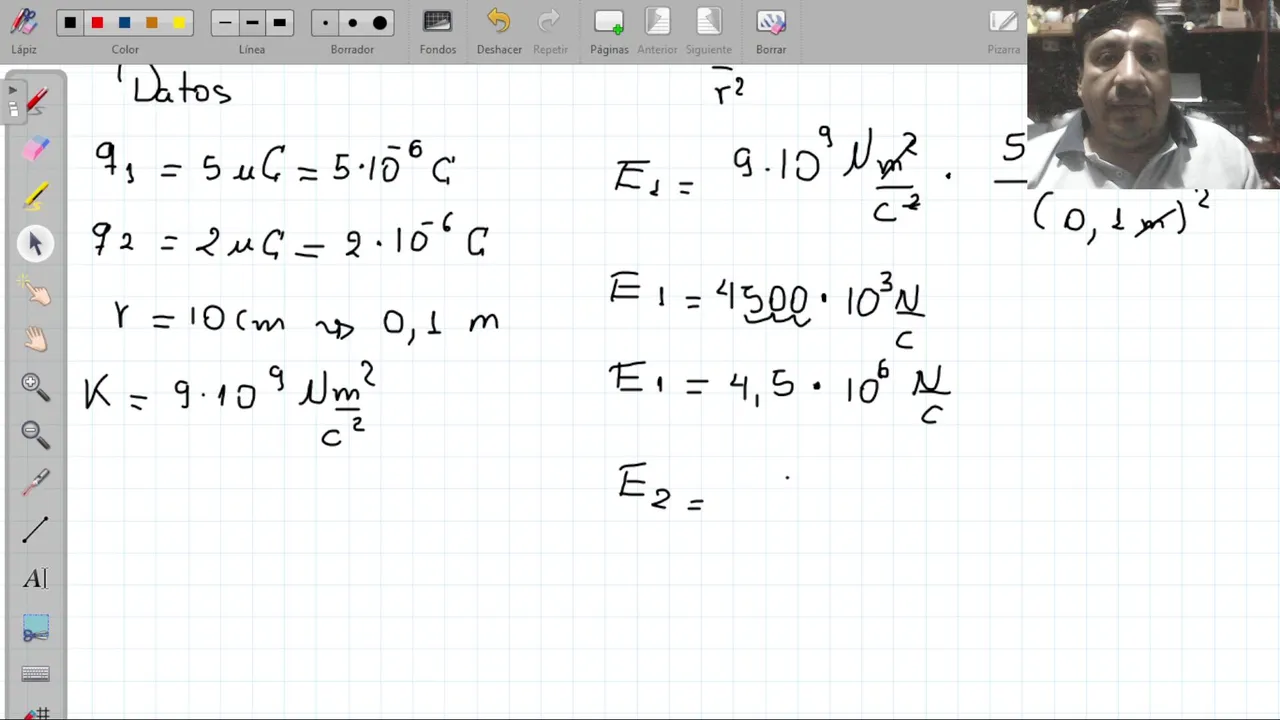 Lápiz Color Línea Borrador Fondos Deshacer Repetir Páginas Anterior Siguiente Borrar Pizarra
Datos
q1 = 5 μC = 5·10⁻⁶ C
q2 = 2 μC = 2·10⁻⁶ C
r = 10 cm ⇝ 0,1 m
K = 9·10⁹ Nm²/c²
r²
E1 = 9·10⁹ Nm²/c² · 5 / (0,1 m)²
E1 = 4500·10³ N/c
E1 = 4,5·10⁶ N/c
E2 =
AI